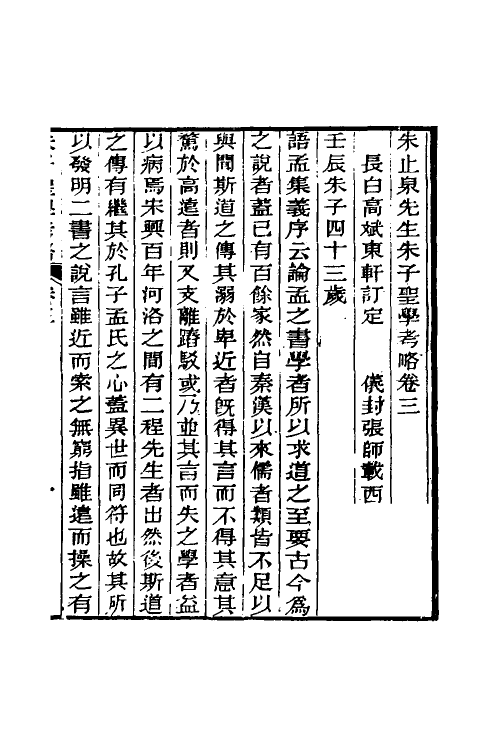 朱止泉先生朱子聖學考略卷三
長白高斌東軒訂定　儀封張師載西
壬辰朱子四十三歲
語孟集義序云論孟之書學者所以求道之至要古今爲
之說者蓋已有百餘家然自秦漢以來儒者類皆不足以
與聞斯道之傳其溺於卑近者旣得其言而不得其意其
騖於高遠者則又支離踳駁或乃並其言而失之學者益
以病焉宋興百年河洛之間有二程先生者出然後斯道
之傳有繼其於孔子孟氏之心蓋異世而同符也故其所
以發明二書之說言雖近而索之無窮指雖遠而操之有